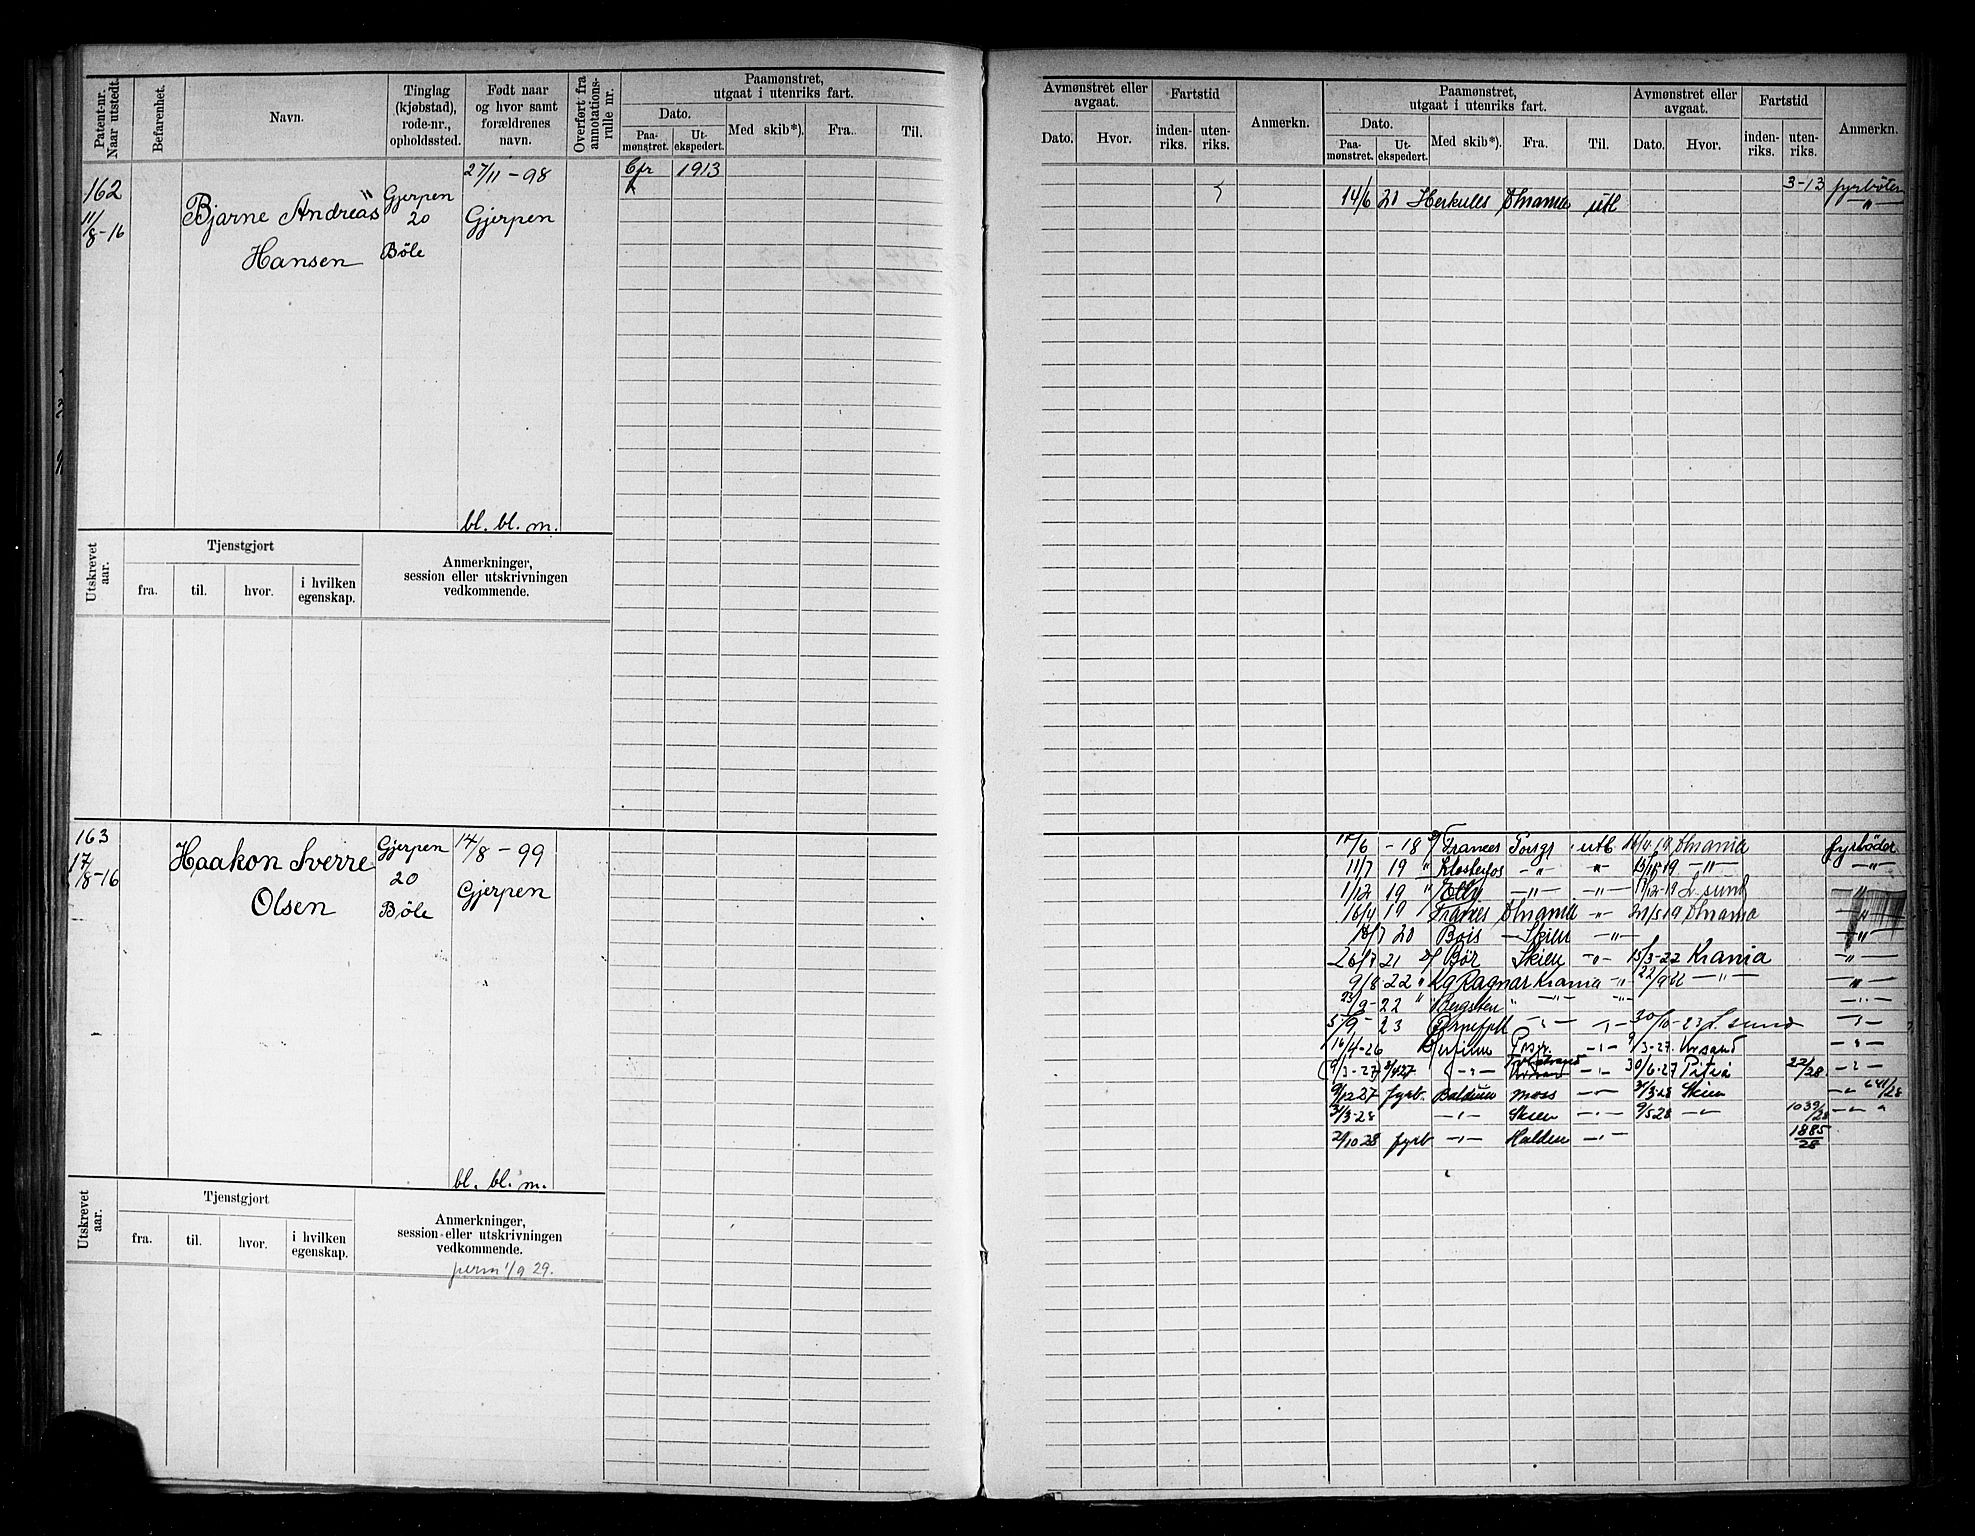 Patent-nr. Naar utstedt.
Befarenhet.
Navn.
Tinglag (kjøbstad), rode-nr., opholdssted.
Født naar og hvor samt forældrenes navn.
Overført fra annotations-rulle nr.
Paamønstret, utgaat i utenriks fart.
Dato.
Paa-mønstret.
Ut-ekspedert.
Med skib*).
Fra.
Til.
162
11/8-16
Bjarne Andreas
Hansen
Gjerpen
20
Bøle
27/11 - 98
Gjerpen
bl. bl. m.
Cfr 1913
Utskrevet aar.
Tjenstgjort
fra.
til.
hvor.
i hvilken egenskap.
Anmerkninger, session eller utskrivningen vedkommende.
163
17/8-16
Haakon Sverre
Olsen
Gjerpen
20
Bøle
14/8 - 99
Gjerpen
bl. bl. m.
Utskrevet aar.
Tjenstgjort
fra.
til.
hvor.
i hvilken egenskap.
Anmerkninger, session eller utskrivningen vedkommende.
perm 1/9 29.
Avmønstret eller avgaat.
Dato.
Hvor.
Fartstid
inden-riks.
uten-riks.
Anmerkn.
Paamønstret, utgaat i utenriks fart.
Dato.
Paa-mønstret.
Ut-ekspedert.
Med skib*).
Fra.
Til.
Avmønstret eller avgaat.
Dato.
Hvor.
Fartstid
inden-riks.
uten-riks.
Anmerkn.
3-13 fyrböter
14/6 20 Herkules utl -"-
- 18 Frances Porsgr utl fyrböder
11/7 19 " -"- " -"- -"-
1/12 19 " Elly -"- -"- L.sund "
16/4 19 Frances -"- "
20 Skien -"- -"-
26/7 21 Bør Skien -"- 15/3-22 Krania -"-
9/8 22 " Kg Ragnar Krania -"- 22/9 22 -"- -"-
23/9-22 " Bergsten " -"- -"- -"-
5/9 - 23 -"- 30/10-23 L.sund -"-
16/4-26 Porsgr. -"- 9/3-27. Krsand -"-
9/3-27 -"- -"- 30/6-27 22/28. -"-
9/12 27 fyrb. Balduin Moss -"- 31/3-28 Skien -"- 641/28
31/3-28 -"- Skien -"- 9/5 28 -"- 1039/28 -"- "
2/10 28 fyrb -"- Halden -"- 1885/28